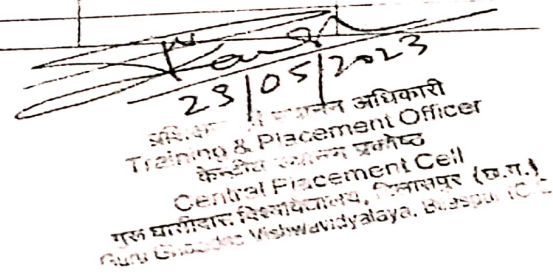 23/05/2023
प्रशि. स्थानन अधिकारी
Training & Placement Officer
केन्द्रीय स्थानन प्रकोष्ठ
Central Placement Cell
गुरू घासीदास विश्वविद्यालय, बिलासपुर (छ.ग.)
Guru Ghasidas Vishwavidyalaya, Bilaspur (C.